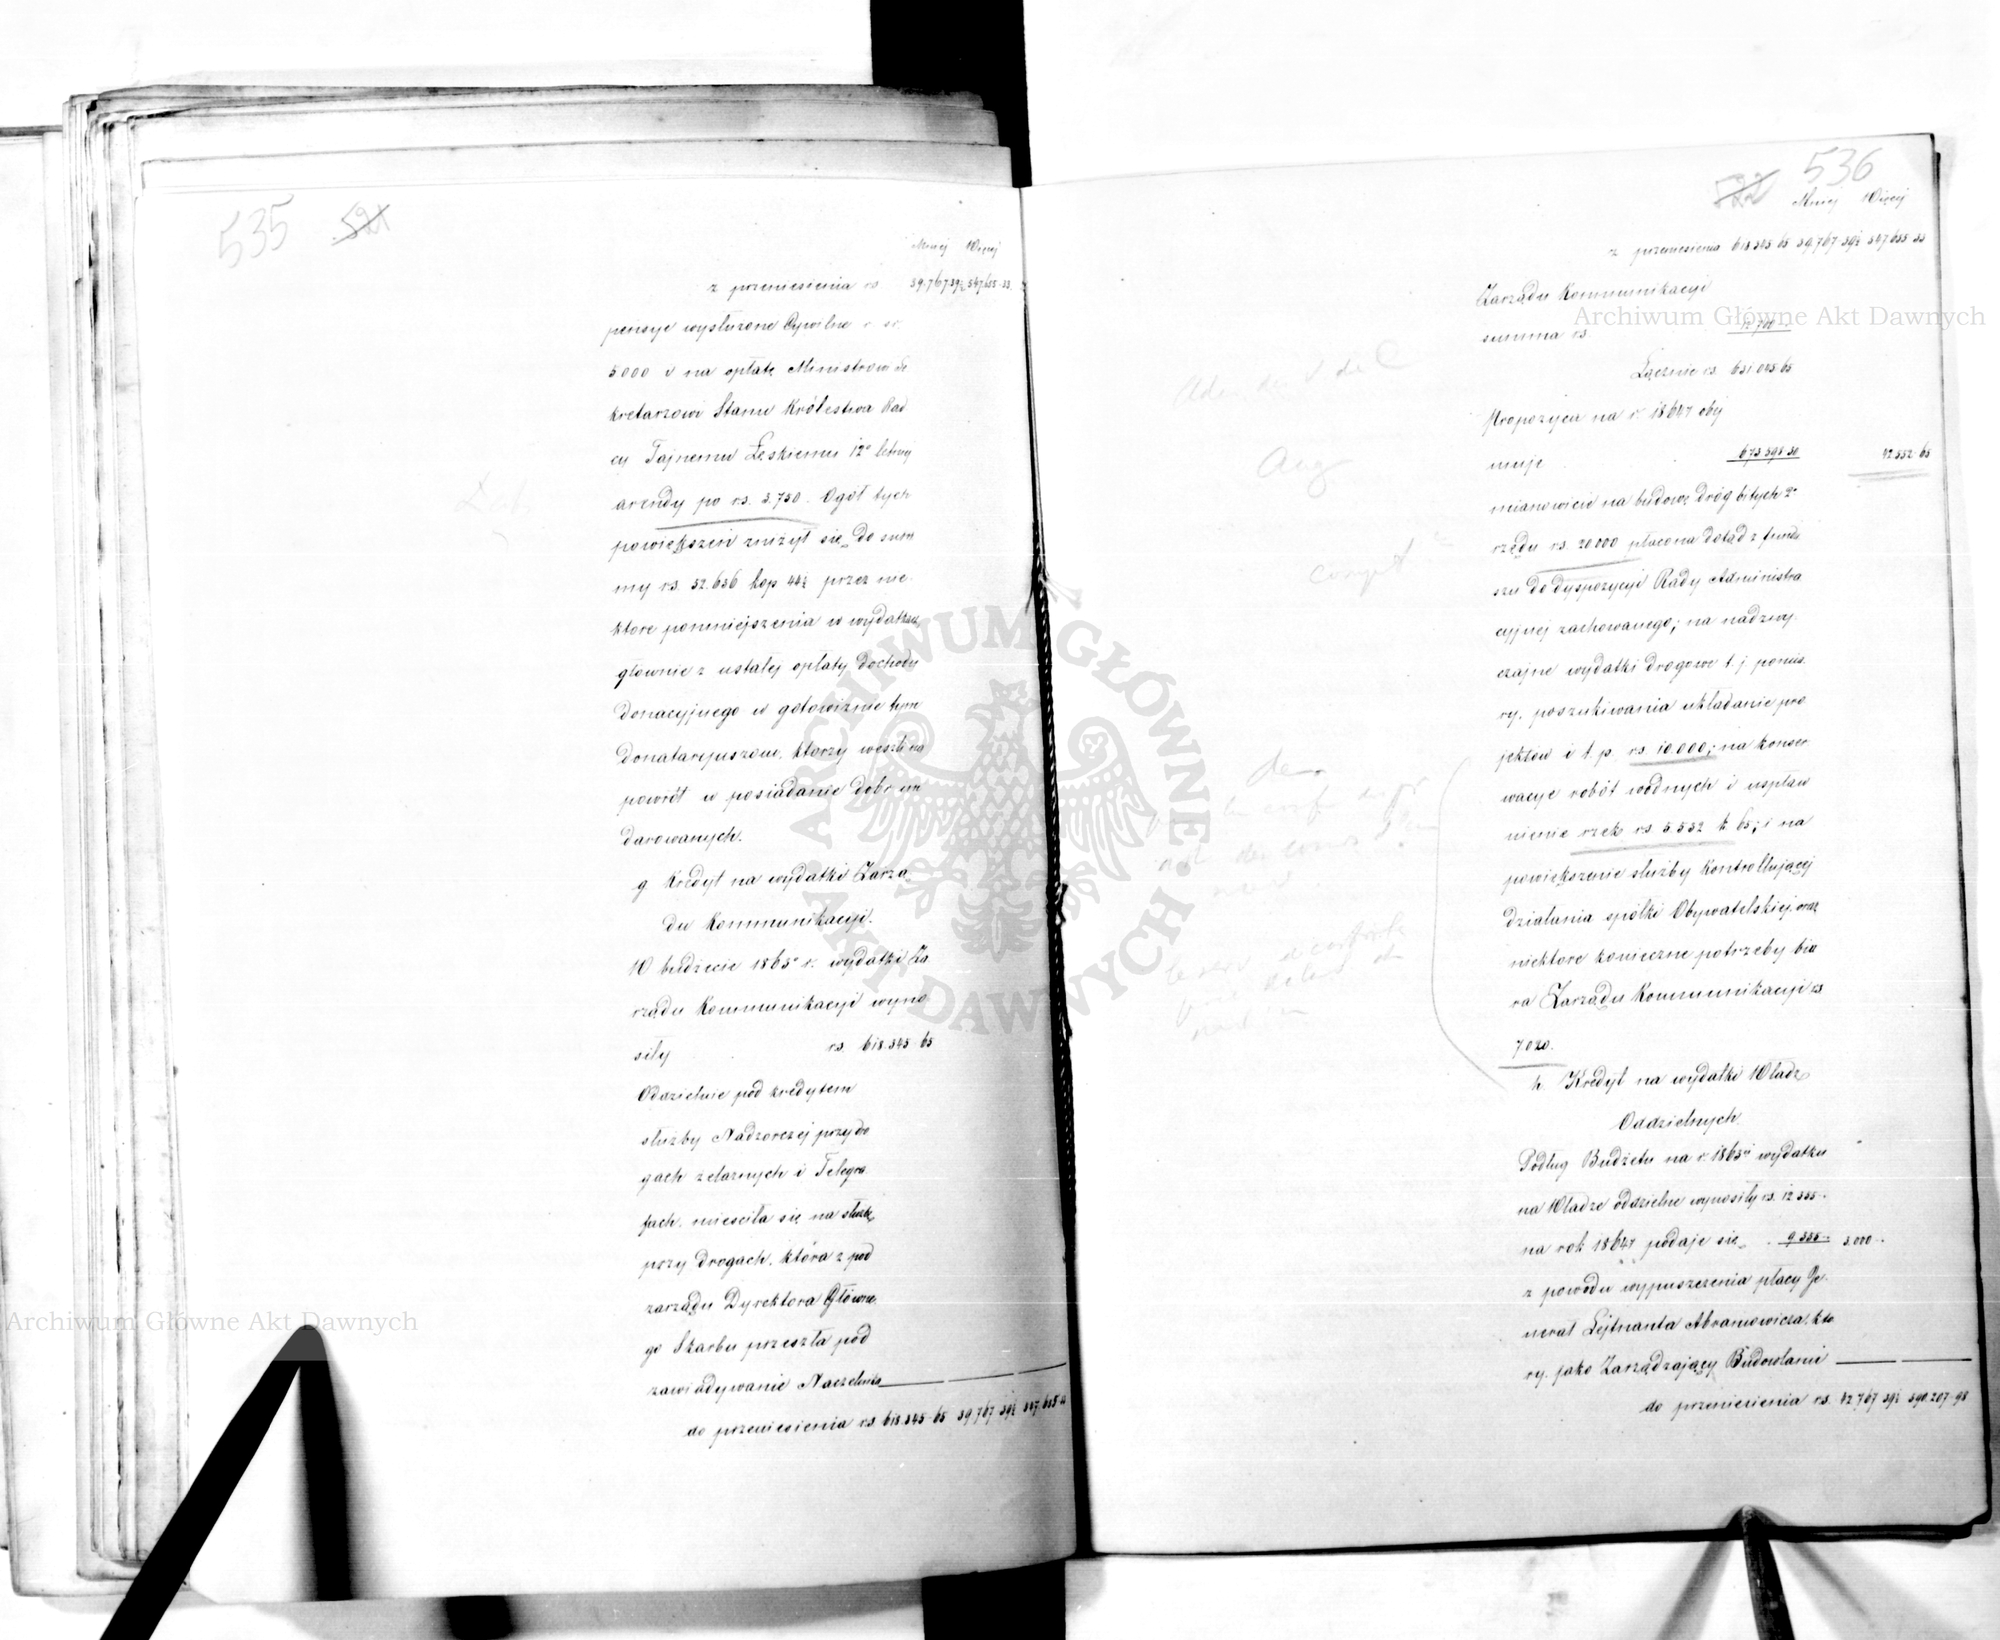 535 521
Mniej Więcej
z przeniesienia rs 39.767 39½ 547.655 33
pensye wysłużone Cywilne r. sr.
5000 i na opłatę Ministrowi Se
kretarzowi Stanu Królestwa Rad
cy Tajnemu Łęskiemu 12o letniej
arendy po rs. 3.750. Ogół tych
powiększeń zniżył się do sum
my rs. 52.636 kop 44½ przez nie
które pomniejszenia w wydatkach
głownie z ustałej opłaty dochodu
donacyjnego w gotowiznie tym
donataryuszom, którzy weszli na
powrót w posiadanie dóbr im
darowanych.
g. Kredyt na wydatki Zarzą
du Kommunikacyi.
W budżecie 1863o r. wydatki Za
rządu Kommunikacyi wyno
siły rs. 618.345 65
Oddzielnie pod kredytem
służby Nadzorczej przy dro
gach żelaznych i Telegra
fach, mieściła się na służbę
przy drogach, która z pod
zarządu Dyrektora Główne
go Skarbu przeszła pod
zawiadywanie Naczelnika
do przeniesienia rs. 618.345 65 39.767 39½ 547.655 33
536
522 Mniej Więcej
z przeniesienia 618.345 65 39.767 39½ 547.655 33
Zarządu Kommunikacyi
summa rs. 12.700
Łącznie rs. 631.045 65
Propozycya na r. 1864/7 obej
muje 673.598 30 42.552 65
mianowicie na budowę dróg bitych 2o
rzędu rs. 20.000 płacona dotąd z fundu
szu do dyspozycyi Rady Administra
cyjnej zachowanego; na nadzwy
czajne wydatki drogowe t. j. pomia
ry, poszukiwania układanie pro
jektów i t. p. rs. 10.000; na konser
wacye robót wodnych i uspław
nienie rzek rs. 5.532 k 65; i na
powiększenie służby kontrollującej
działania spółki Obywatelskiej oraz
niektóre konieczne potrzeby biu
ra Zarządu Kommunikacyi rs
7.020.
h. Kredyt na wydatki Władz
Oddzielnych.
Podług Budżetu na r. 1863ci wydatku
na Władze oddzielne wynosiły rs. 12.355
na rok 1864/7 podaje się 9.355 3.000
z powodu wypuszczenia płacy Je
nerał Lejtnanta Abramowicza, któ
ry, jako Zarządzający Budowlami
do przeniesienia rs. 42.767 39½ 590.207 98
Archiwum Główne Akt Dawnych
Archiwum Główne Akt Dawnych
ARCHIWUM GŁÓWNE AKT DAWNYCH